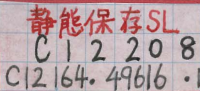 静態保存SL
C12208
C12164.49616.1